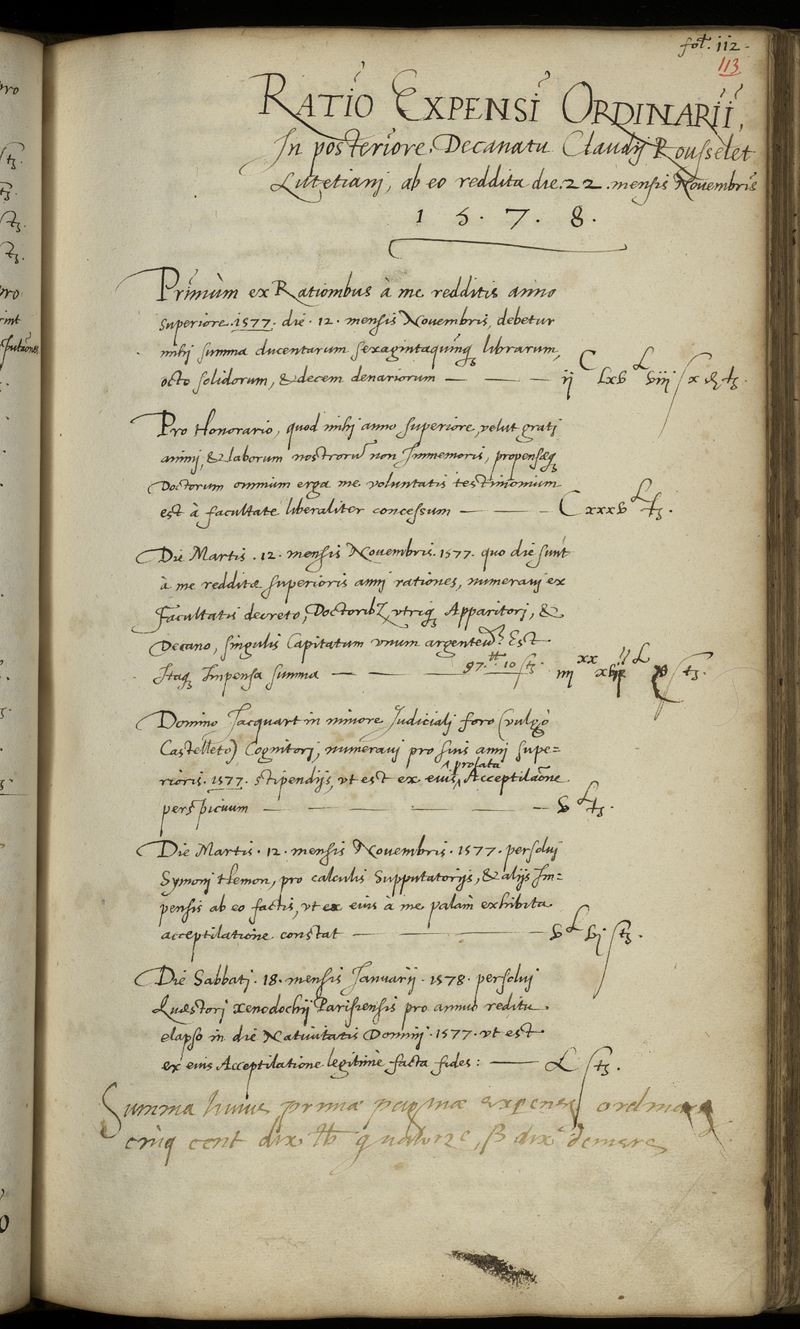 fol. 112.
113
RATIO EXPENSI ORDINARII,
In posteriore Decanatu Claudij Rousselet
Lutetianj, ab eo reddita die. 22. mensis Nouembris
1 5. 7. 8.
Primùm ex Rationibus à me redditis anno
superiore. 1577. die. 12. mensis Nouembris, debetur
mihj summa ducentarum sexagintaquinq librarum,
octo solidorum, & decem denariorum — — — ij C lxv L viij ß x
Pro Honorario, quod mihj anno superiore, velut gratj
animj, & laborum nostrorū non Immemoris, propensæq
Doctorum omnium erga me voluntatis testimonium
est à facultate liberaliter concessum — — — C xxxv L
Die Martis. 12. mensis Nouembris. 1577. quo die sunt
à me redditæ superioris annj rationes, numerauj ex
Facultatis decreto, Doctorib9, vtriq Apparitorj, &
Decano, singulis Capitatum vnum argenteū. Est
Itaq Impensa summa — — — 97. 10 iiij xx L
Domino Jacquart in minore Judicialj foro (vulgò
Castelleto) Cognitorj, numerauj pro suis annj supe=
rioris. 1577. stipendijs, vt est ex eius prolata Acceptilaōne
perspicuum — — — — — v L
Die Martis. 12. mensis Nouembris. 1577. persoluj
Symonj Hemon, pro calculis supputatorijs, & alijs Im=
pensis ab eo factis, vt ex eius à me palam exhibita
acceptilatione constat — — — v L vj ß
Die Sabbatj. 18. mensis Januarij. 1578. persoluj
Quæstorj xenodochij Parisiensis pro annuo reditu
elapso in die Natiuitatis Dominj. 1577. vt est
ex eius Acceptilatione legitimè facta fides: — L ß
Summa huius primæ paginæ expensj ordinarij
cinq cent dix lb quatorze, ß dix deniers